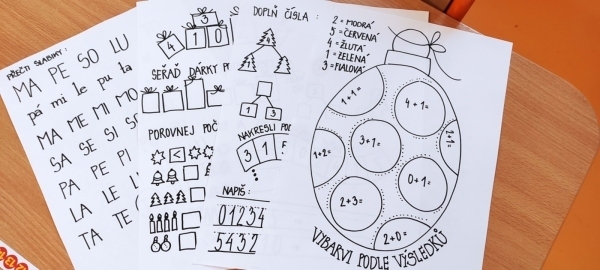 PŘEČTI SLABIKY:
MA PE SO LU
pá mi le pu ta
MA ME MI MO
SA SE SI SO
PA PE PI
LA LE LI
TA TE
3
4 1 0
SEŘAĎ DÁRKY
POROVNEJ POČ
<
DOPLŇ ČÍSLA:
4
1 3
NAKRESLI POČ
3 1
NAPIŠ:
01234
5432
2 = MODRÁ
5 = ČERVENÁ
4 = ŽLUTÁ
1 = ZELENÁ
3 = FIALOVÁ
1+1=
4+1=
3+1=
2+1=
1+2=
0+1=
2+3=
2+0=
VYBARVI PODLE VÝSLEDKŮ